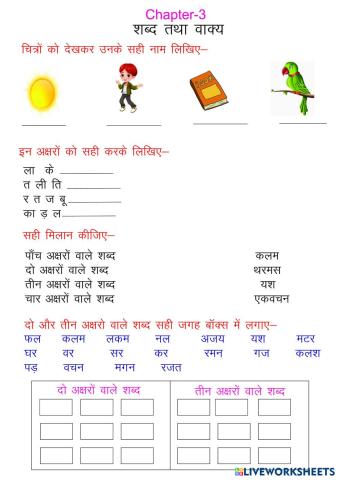 Chapter-3
शब्द तथा वाक्य
चित्रों को देखकर उनके सही नाम लिखिए–
इन अक्षरों को सही करके लिखिए–
ला के
त ली ति
र त ज बू
का ड़ ल
सही मिलान कीजिए–
पाँच अक्षरों वाले शब्द कलम
दो अक्षरों वाले शब्द थरमस
तीन अक्षरों वाले शब्द यश
चार अक्षरों वाले शब्द एकवचन
दो और तीन अक्षरो वाले शब्द सही जगह बॉक्स में लगाए–
फल कलम लकम नल अजय यश मटर
घर वर सर कर रमन गज कलश
पड़ वचन मगन रजत
दो अक्षरों वाले शब्द तीन अक्षरों वाले शब्द
LIVEWORKSHEETS